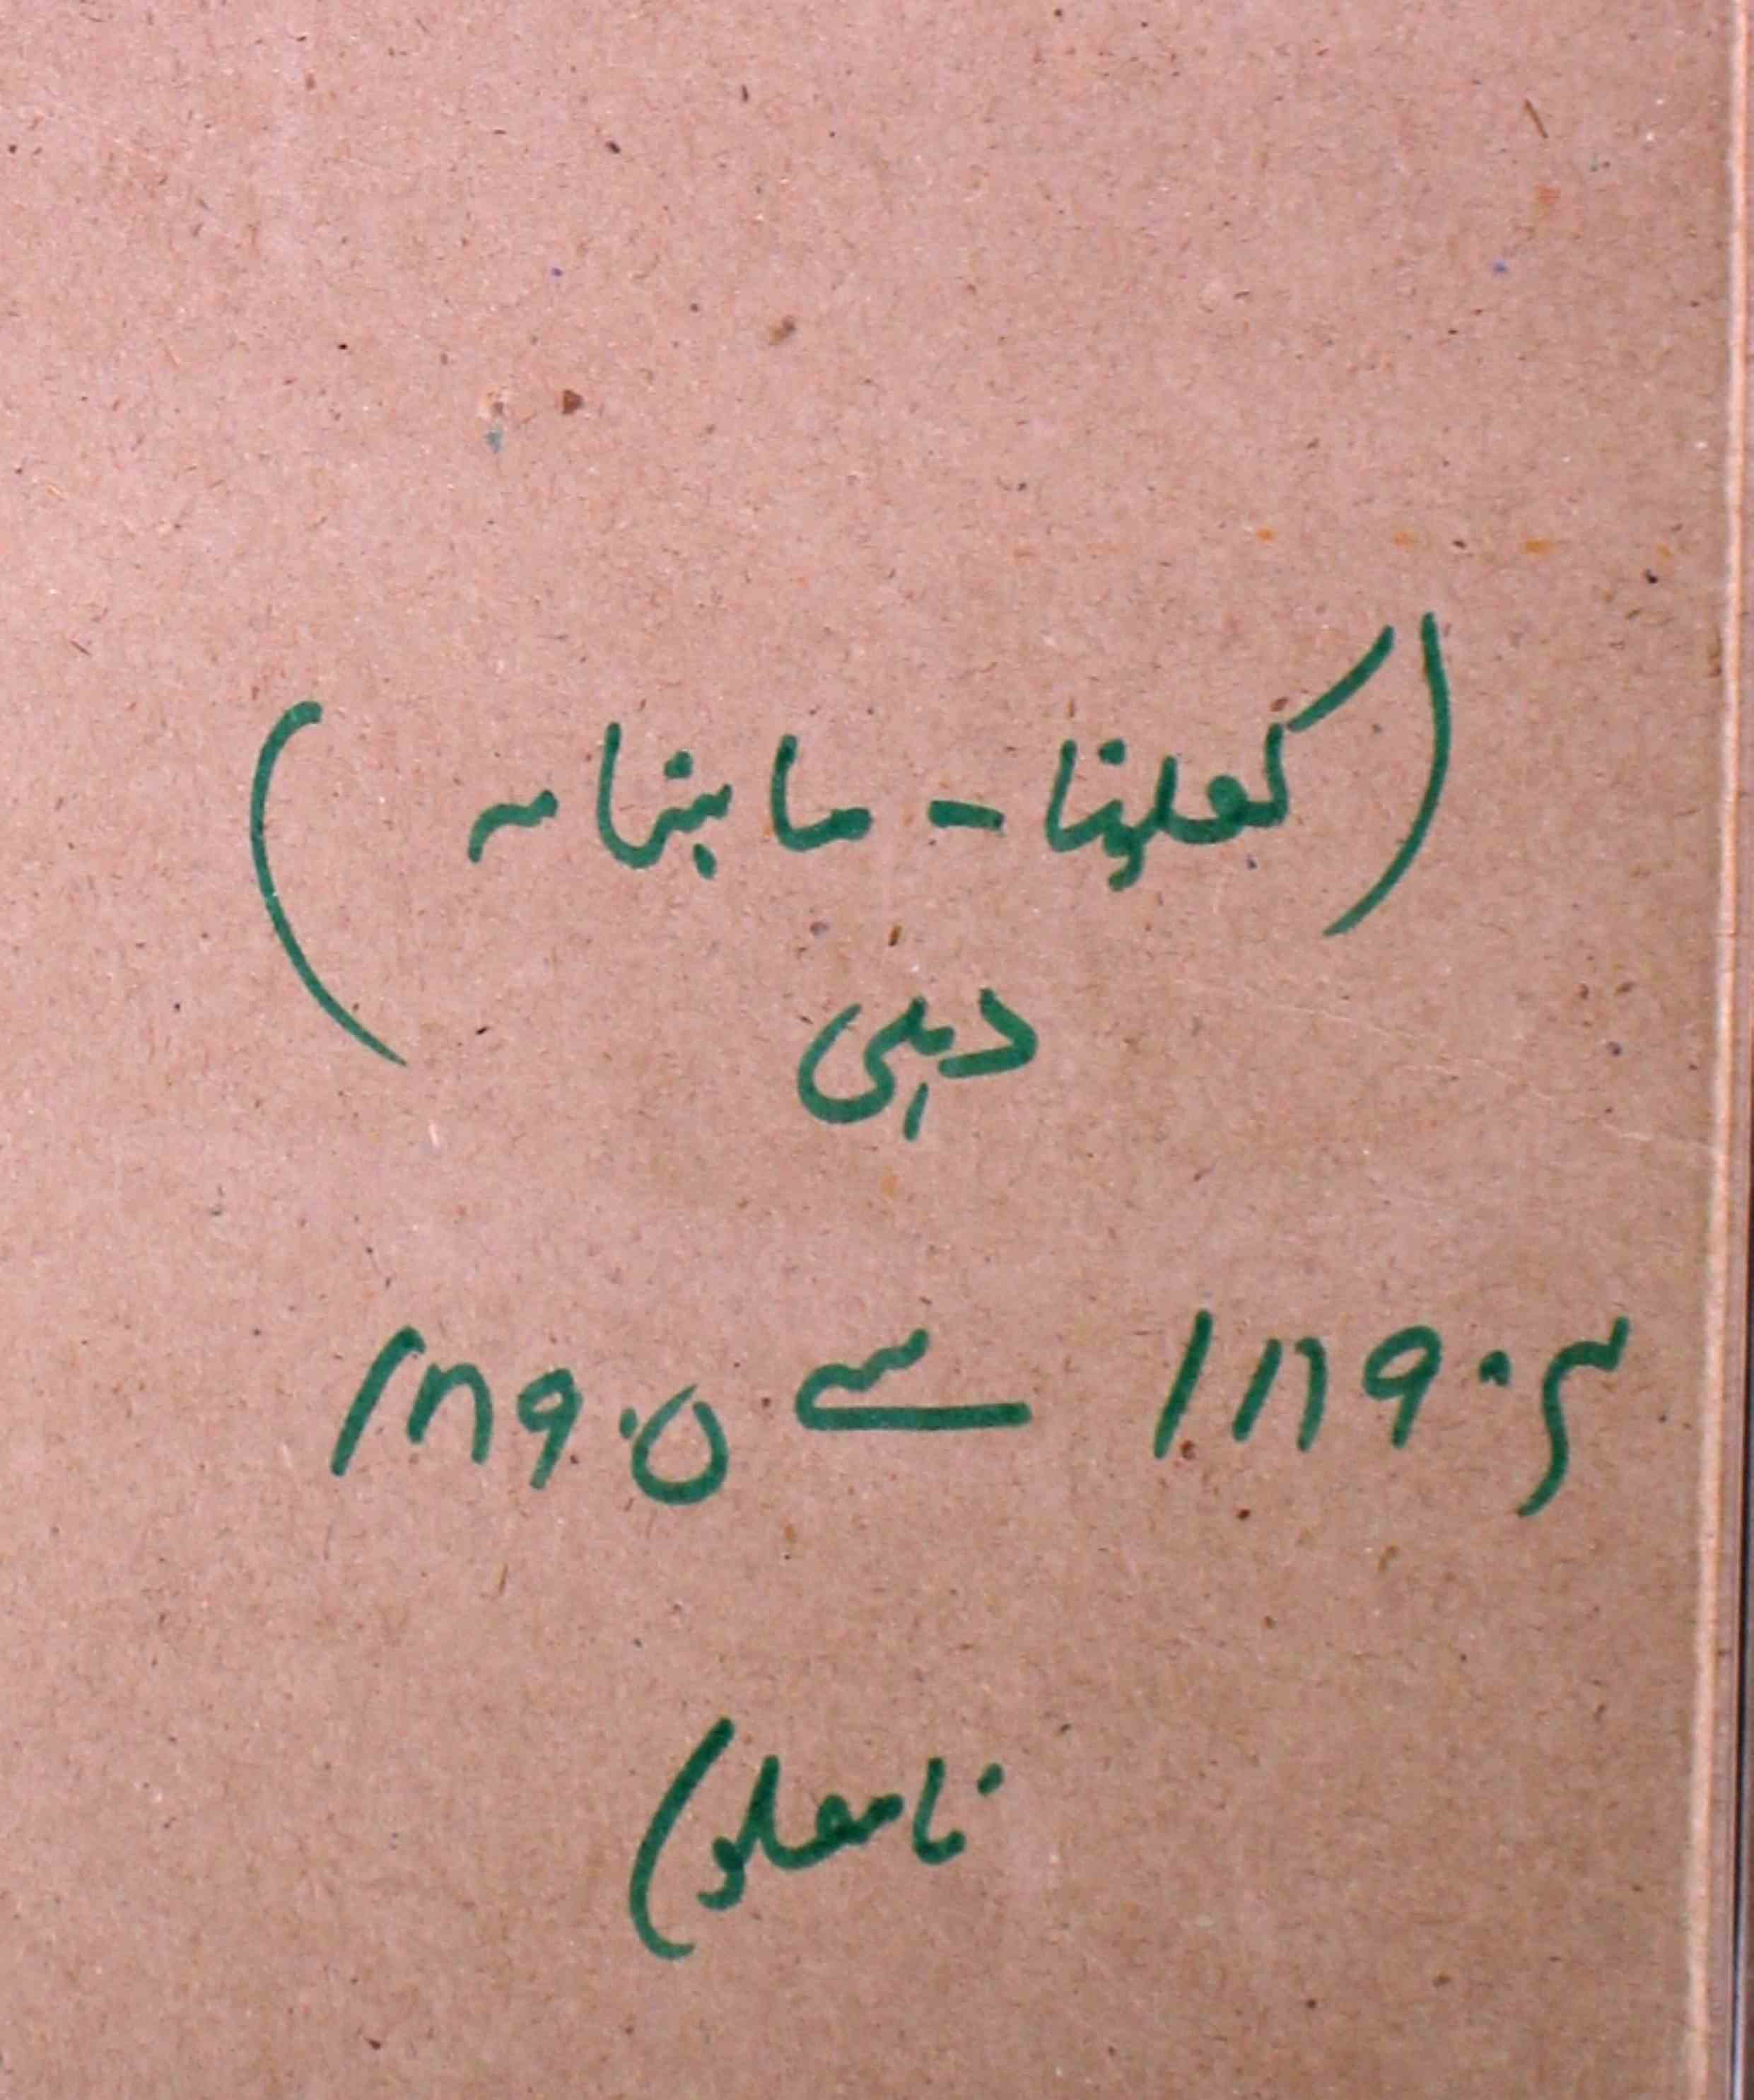 (کھلونا - ماہنامہ)
دہلی
۱۸۹۰۴ سے ۱۸۹۰۵
نامعلوم